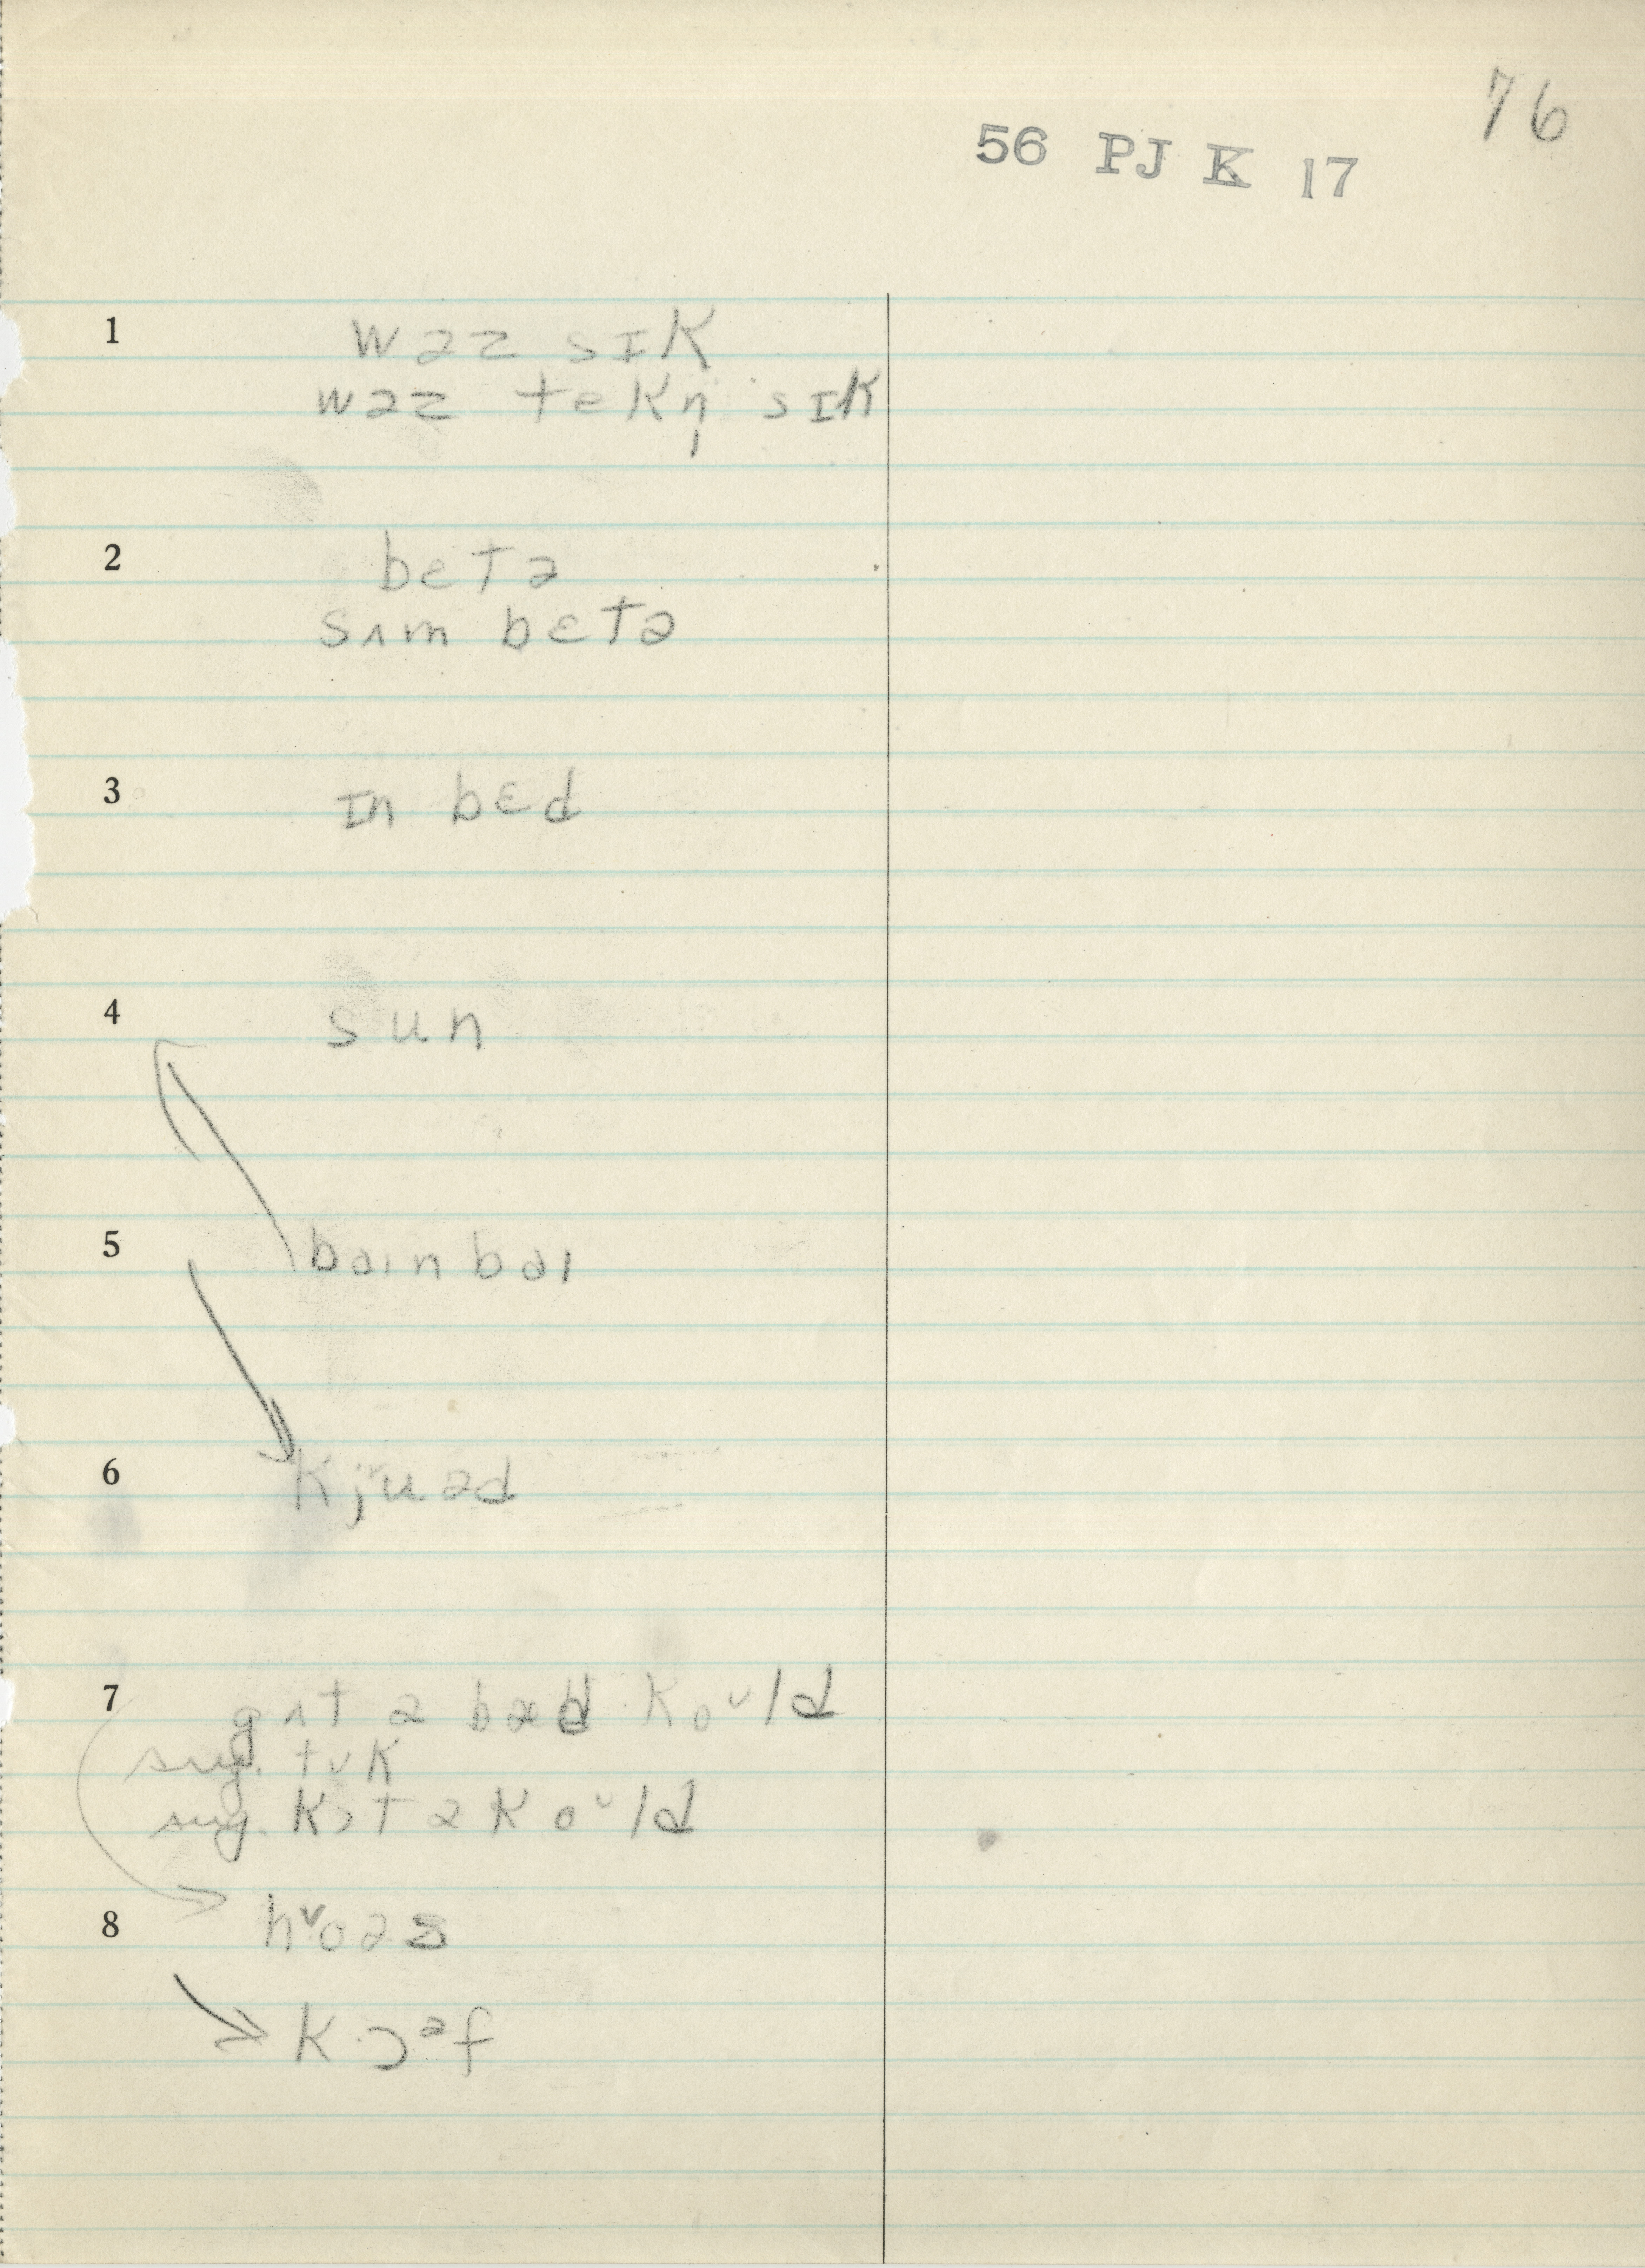 76
56 PJ K 17
1 wəz sɪk
wəz tekn̩ sɪk
2 betə
sʌm bɛtə
3 ɪn bɛd
4 sun
5 bɑɪnbɑɪ
6 kjuəd
7 gʌt ə bæd koᶷld
sug. tʊk
sug. kɔt ə koᶷld
8 hᶷoəs
kɔᵊf